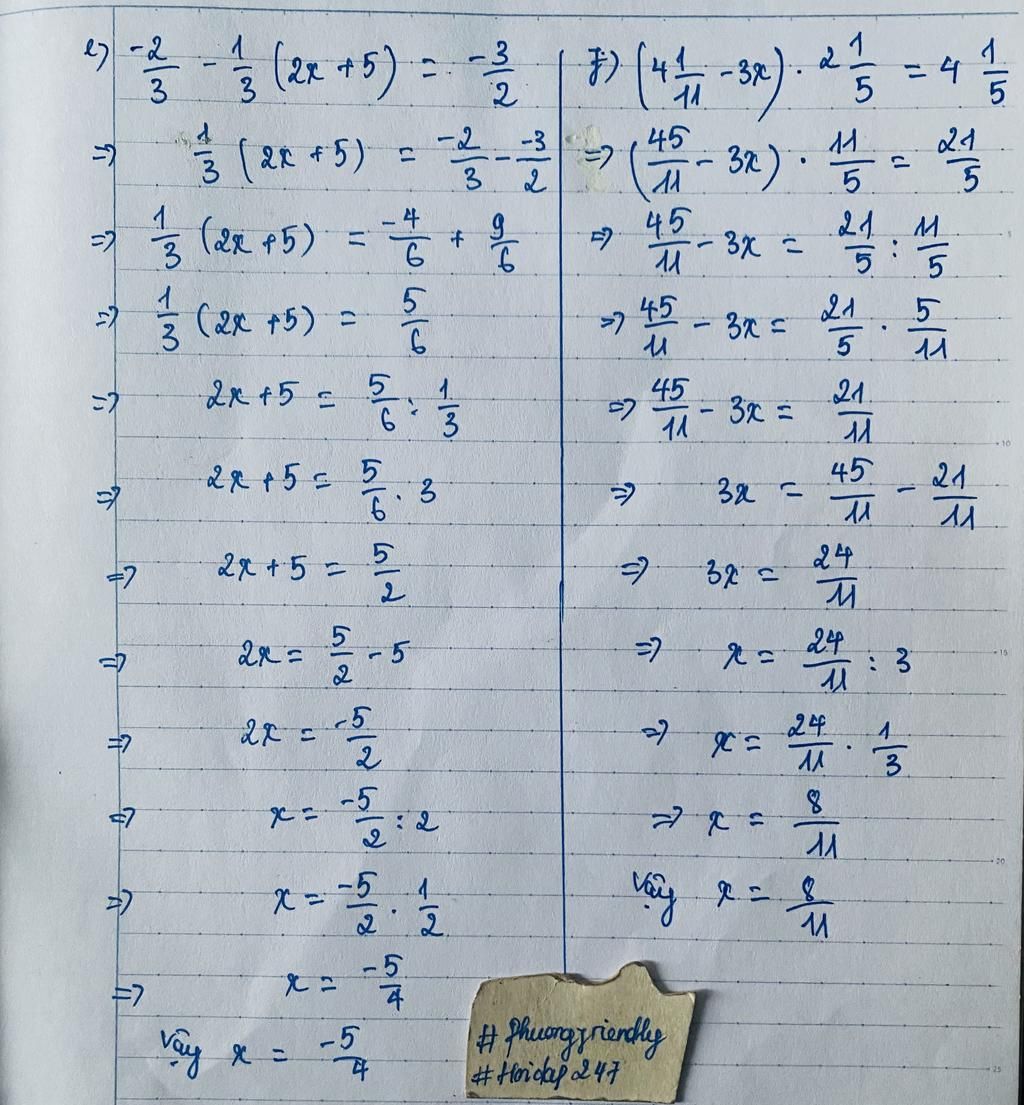 e) -2/3 - 1/3 (2x + 5) = -3/2
=> 1/3 (2x + 5) = -2/3 - -3/2
=> 1/3 (2x + 5) = -4/6 + 9/6
=> 1/3 (2x + 5) = 5/6
=> 2x + 5 = 5/6 : 1/3
=> 2x + 5 = 5/6 . 3
=> 2x + 5 = 5/2
=> 2x = 5/2 - 5
=> 2x = -5/2
=> x = -5/2 : 2
=> x = -5/2 . 1/2
=> x = -5/4
Vậy x = -5/4
f) (4 1/11 - 3x) . 2 1/5 = 4 1/5
=> (45/11 - 3x) . 11/5 = 21/5
=> 45/11 - 3x = 21/5 : 11/5
=> 45/11 - 3x = 21/5 . 5/11
=> 45/11 - 3x = 21/11
=> 3x = 45/11 - 21/11
=> 3x = 24/11
=> x = 24/11 : 3
=> x = 24/11 . 1/3
=> x = 8/11
Vậy x = 8/11
# phuongfriendly
# Hoidap 247